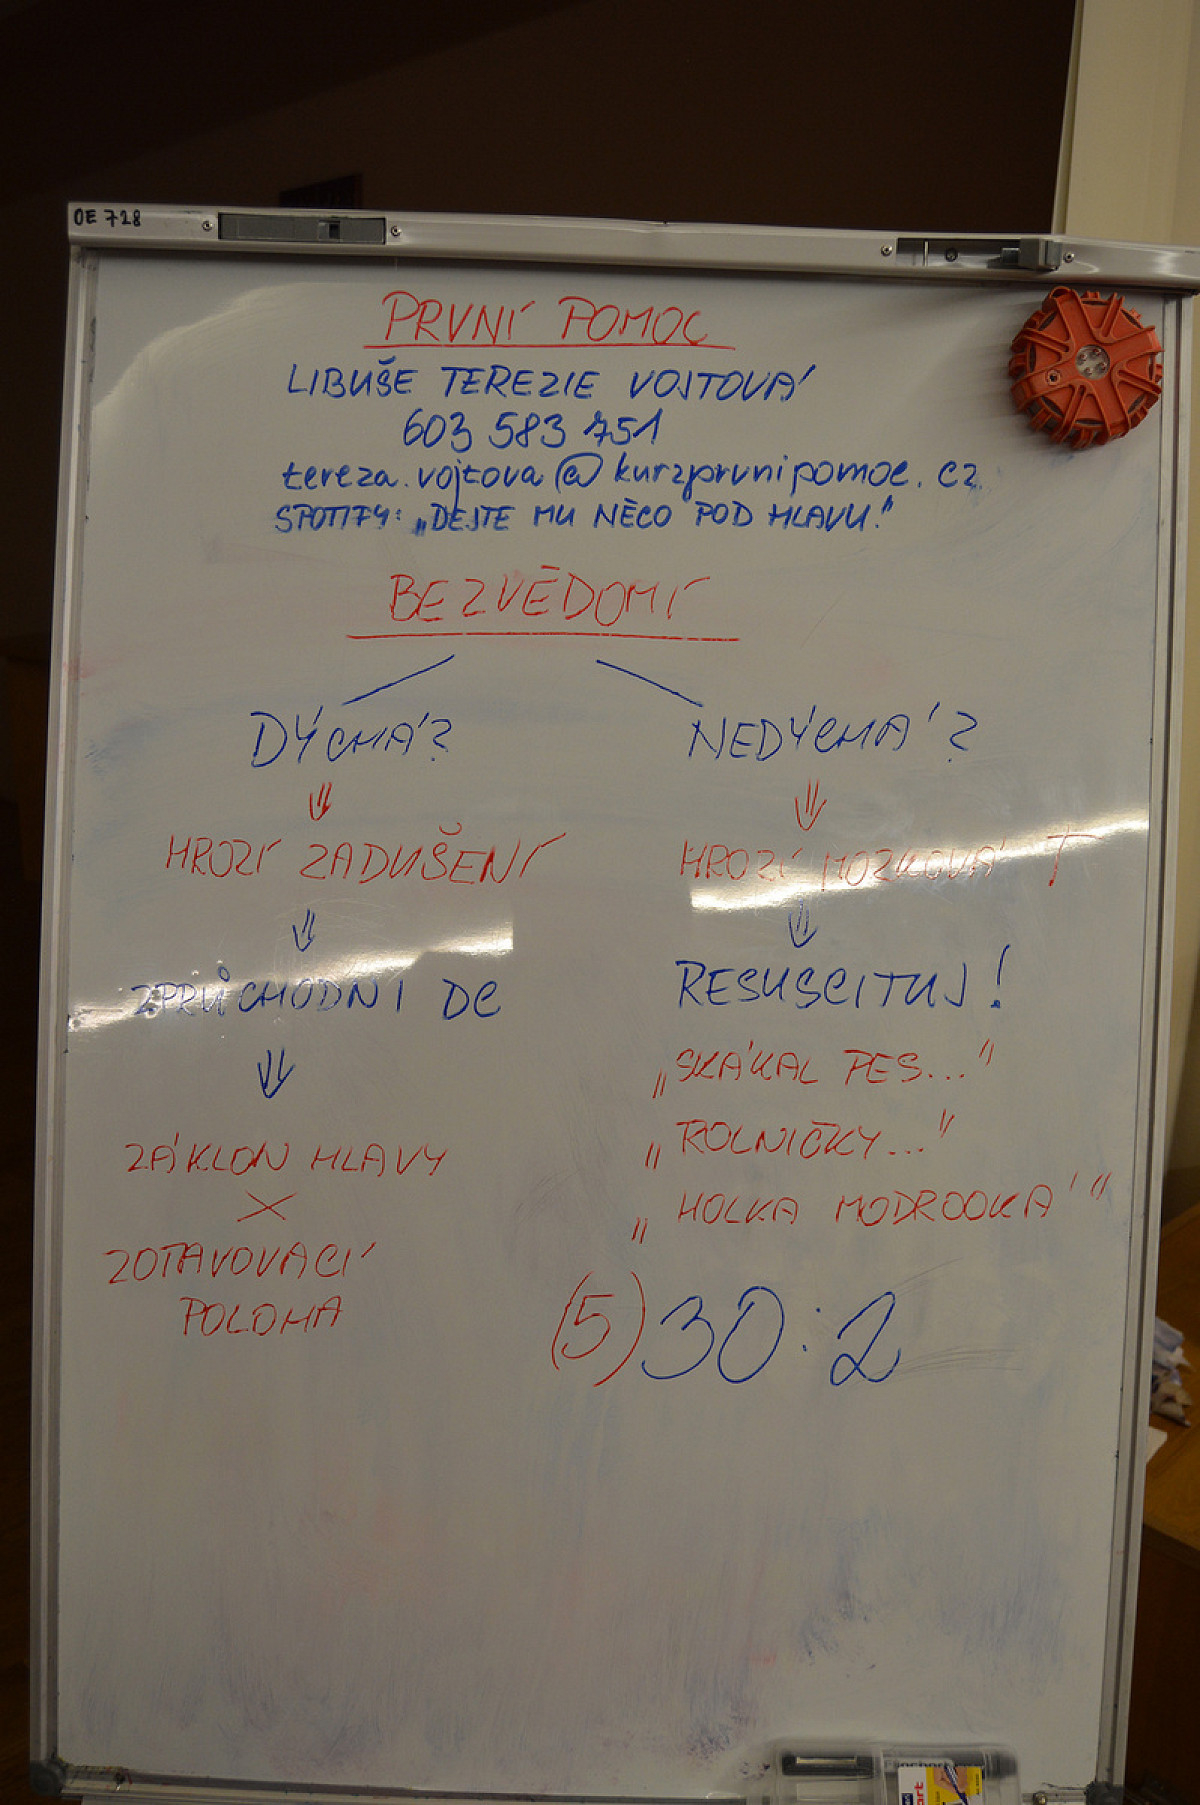 OE 728
PRVNÍ POMOC
LIBUŠE TEREZIE VOJTOVÁ
603 583 751
tereza.vojtova@kurzprvnipomoc.cz
SPOTIFY: „DEJTE MU NĚCO POD HLAVU!"
BEZVĚDOMÍ
DÝCHÁ?
NEDÝCHÁ?
⇓
⇓
HROZÍ ZADUŠENÍ
HROZÍ MOZKOVÁ †
⇓
⇓
ZPRŮCHODNI DC
RESUSCITUJ!
⇓
„SKÁKAL PES..."
ZÁKLON HLAVY
„ROLNIČKY..."
×
„HOLKA MODROOKÁ"
ZOTAVOVACÍ
POLOHA
(5) 30:2